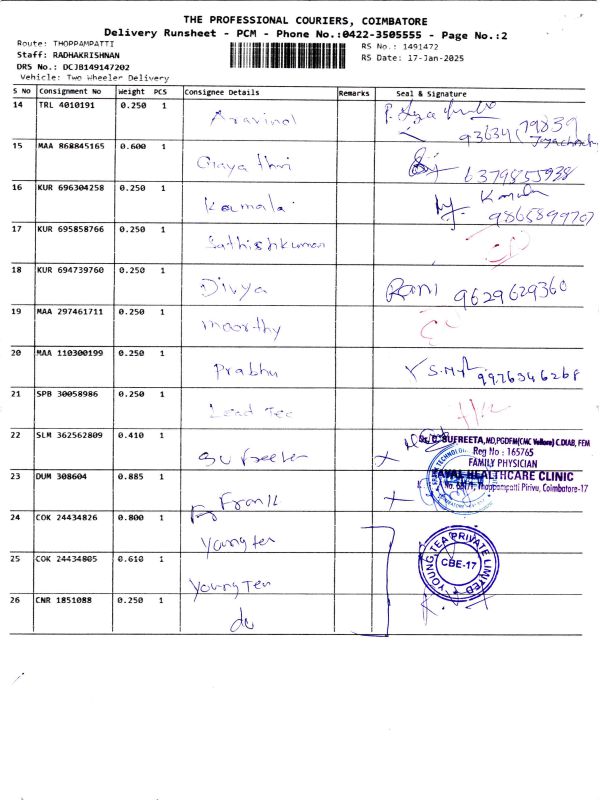 THE PROFESSIONAL COURIERS, COIMBATORE
Delivery Runsheet - PCM - Phone No.:0422-3505555 - Page No.:2
Route: THOPPAMPATTI
RS No.: 1491472
Staff: RADHAKRISHNAN
RS Date: 17-Jan-2025
DRS No.: DCJB149147202
Vehicle: Two Wheeler Delivery
S No Consignment No Weight PCS Consignee Details Remarks Seal & Signature
14 TRL 4010191 0.250 1 Aravind
15 MAA 868845165 0.600 1 Gayathri 6379855938
16 KUR 696304258 0.250 1 Kamala Kamala
9865899707
17 KUR 695858766 0.250 1 Sathishkumar
18 KUR 694739760 0.250 1 Divya Rani 9629629360
19 MAA 297461711 0.250 1 moorthy
20 MAA 110300199 0.250 1 Prabhu 9976346268
21 SPB 30058986 0.250 1 Lead Tec
22 SLM 362562809 0.410 1 Sufreeta
Dr. C. SUFREETA, MD,PGDFM(CMC Vellore) C.DIAB, FEM
Reg No : 165765
FAMILY PHYSICIAN
HEALTHCARE CLINIC
Thoppampatti Pirivu, Coimbatore-17
23 DUM 308604 0.885 1 Frank
24 COK 24434826 0.800 1 Young ten
25 COK 24434805 0.610 1 Young Ten
YOUNG TEA PRIVATE LIMITED
CBE-17
26 CNR 1851088 0.250 1 do